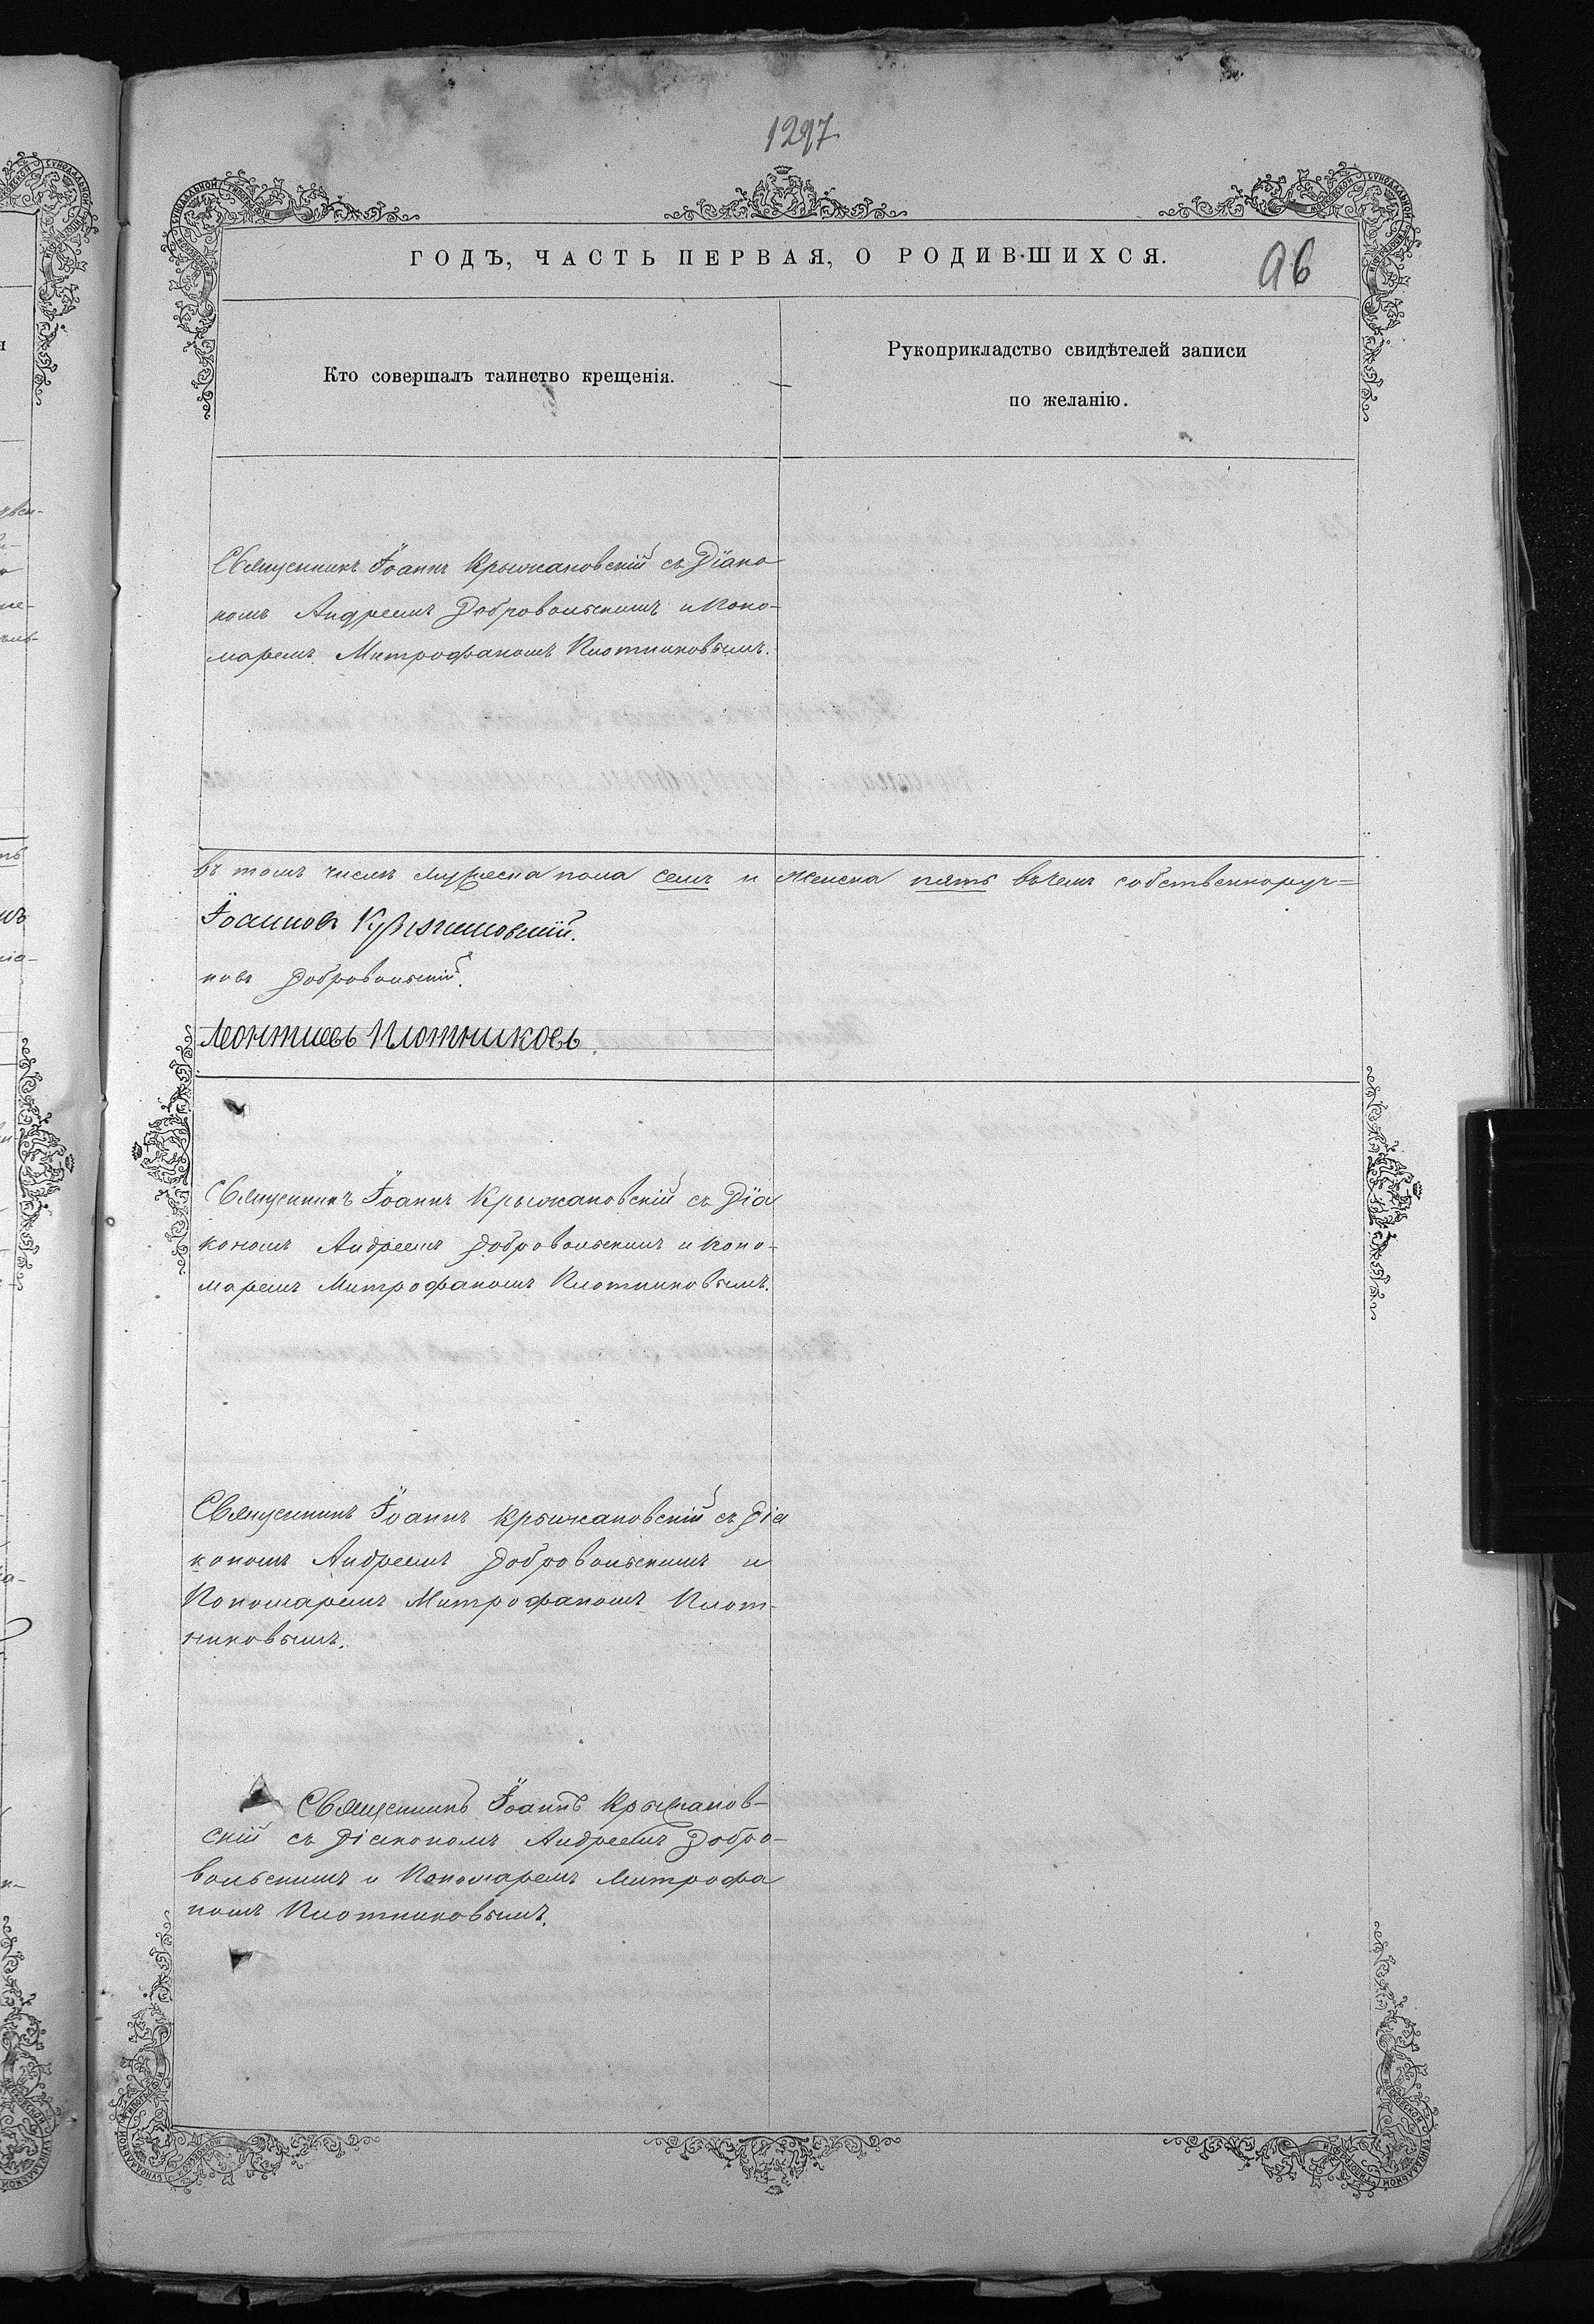 1297
ГОДЪ, ЧАСТЬ ПЕРВАЯ, О РОДИВШИХСЯ.
96
Кто совершалъ таинство крещенія.
Рукоприкладство свидѣтелей записи
по желанію.
Священникъ Іоаннъ Крыжановскій съ Діако
номъ Андреемъ Добровольскимъ и Поно-
маремъ Митрофаномъ Плотниковымъ.
въ томъ числѣ мужеска пола семь и женска пять въ чемъ собственноруч=
Іоанновъ Крыжановскій.
новъ Добровольскій.
Леонтиевъ Плотниковъ
Священникъ Іоаннъ Крыжановскій съ Діа
кономъ Андреемъ Добровольскимъ и Поно-
маремъ Митрофаномъ Плотниковымъ.
Священникъ Іоаннъ Крыжановскій съ Діа
кономъ Андреемъ Добровольскимъ и
Пономаремъ Митрофаномъ Плот-
никовымъ.
Священникъ Іоаннъ Крыжанов-
скій съ Діакономъ Андреемъ Добро-
вольскимъ и Пономаремъ Митрофа
номъ Плотниковымъ.